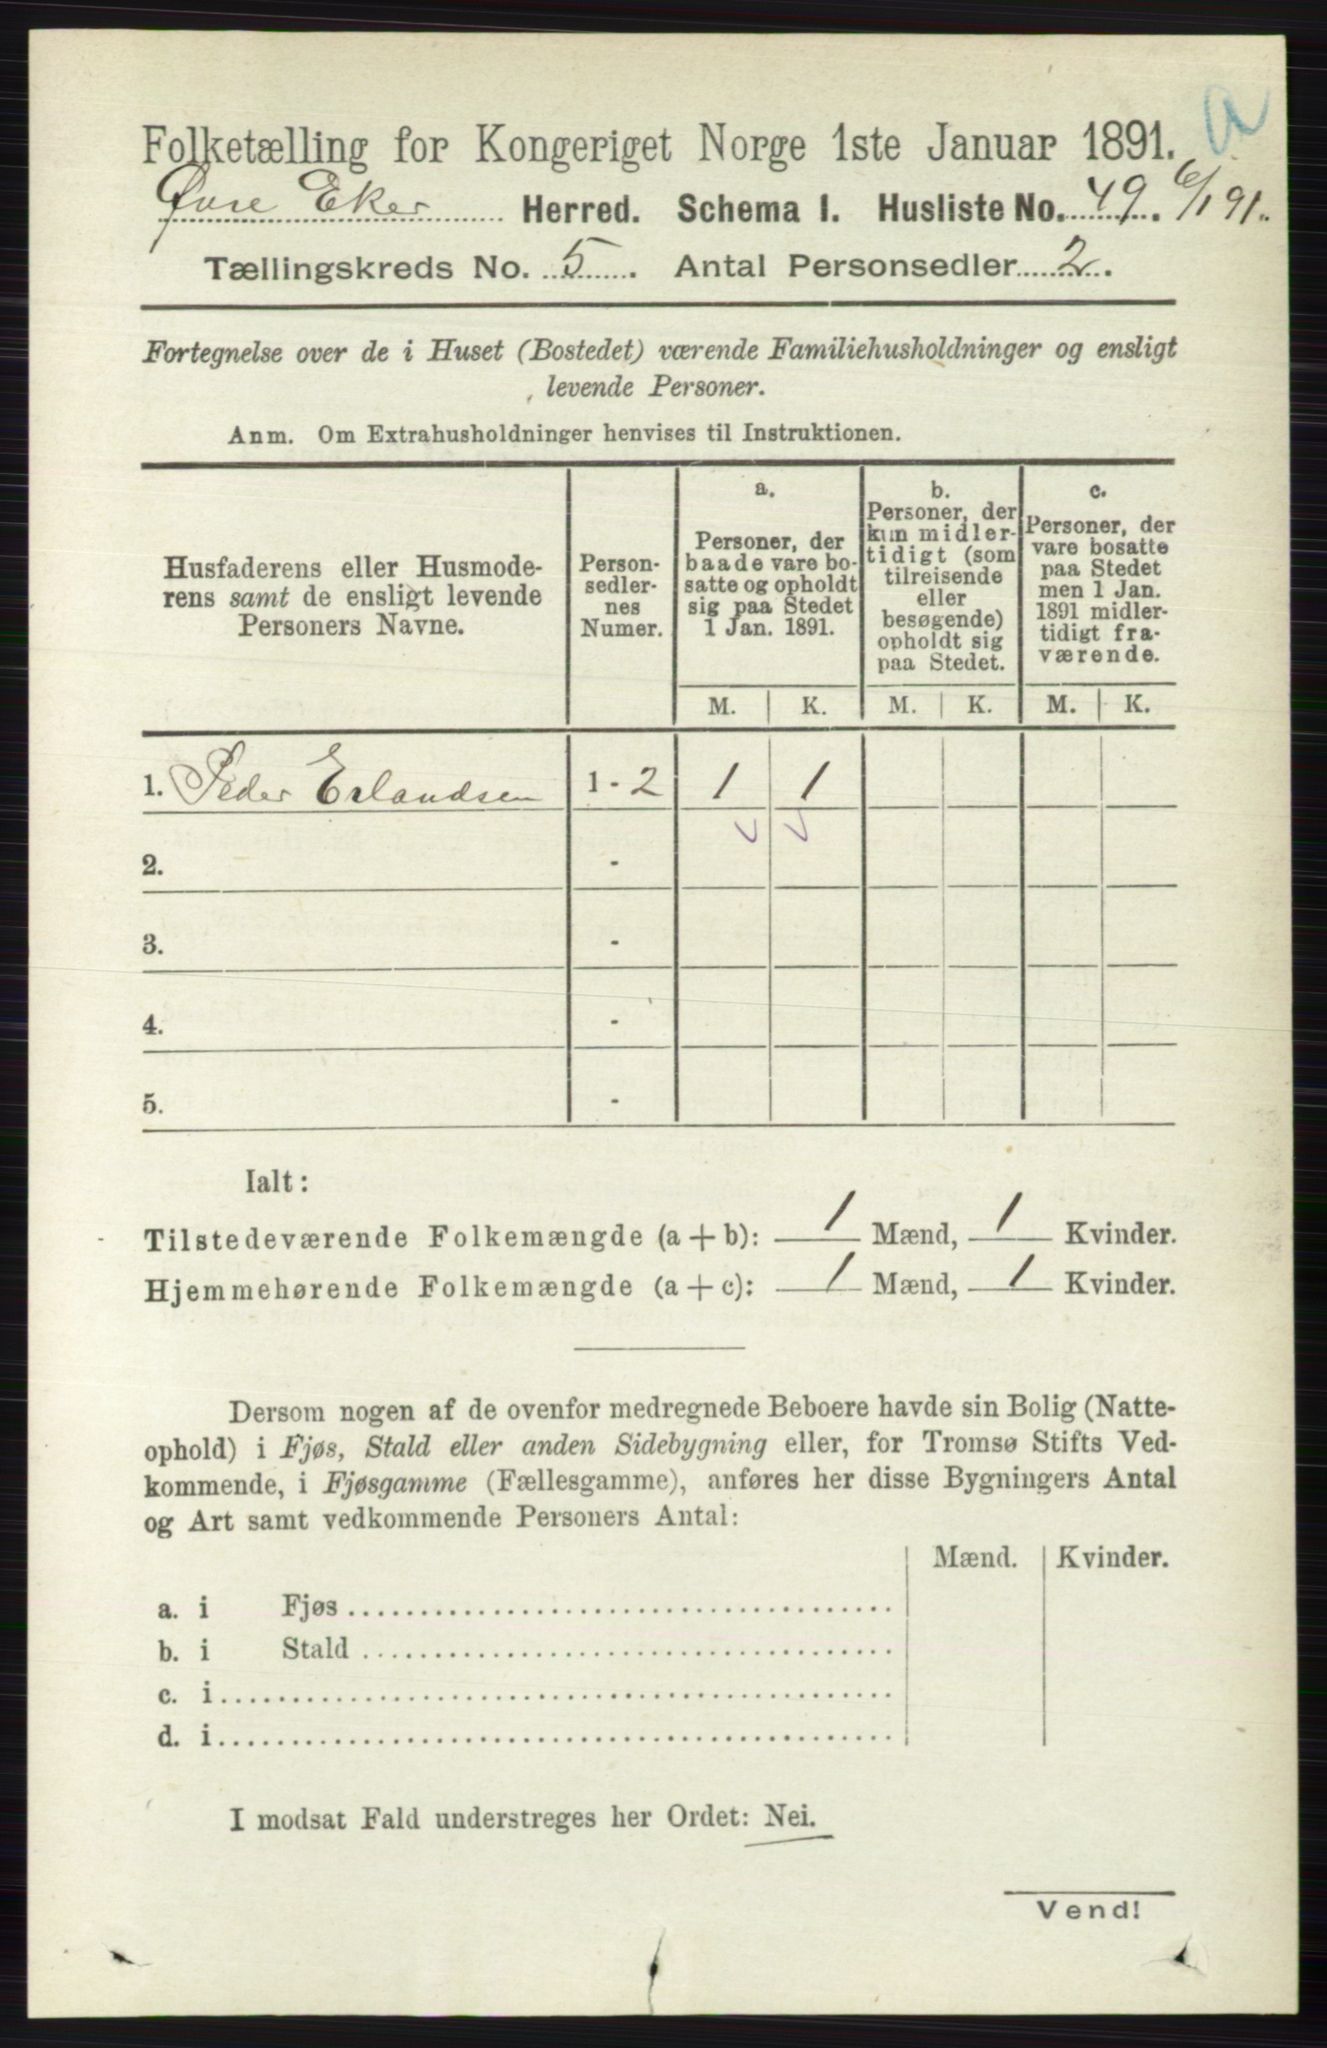 a
Folketælling for Kongeriget Norge 1ste Januar 1891.
Øvre Eker Herred. Schema 1. Husliste No. 49. 6/1 91.
Tællingskreds No. 5. Antal Personsedler 2.
Fortegnelse over de i Huset (Bostedet) værende Familiehusholdninger og ensligt
levende Personer.
Anm. Om Extrahusholdninger henvises til Instruktionen.
Husfaderens eller Husmode-
rens samt de ensligt levende
Personers Navne.
Person-
sedler-
nes
Numer.
a.
Personer, der
baade vare bo-
satte og opholdt
sig paa Stedet
1 Jan. 1891.
b.
Personer, der
kun midler-
tidigt (som
tilreisende
eller
besøgende)
opholdt sig
paa Stedet.
c.
Personer, der
vare bosatte
paa Stedet
men 1 Jan.
1891 midler-
tidigt fra-
værende.
M. K. M. K. M. K.
1. Peder Erlandsen 1 - 2 1 1
2. -
3. -
4. -
5. -
Ialt:
Tilstedeværende Folkemængde (a + b): 1 Mænd, 1 Kvinder.
Hjemmehørende Folkemængde (a + c): 1 Mænd, 1 Kvinder.
Dersom nogen af de ovenfor medregnede Beboere havde sin Bolig (Natte-
ophold) i Fjøs, Stald eller anden Sidebygning eller, for Tromsø Stifts Ved-
kommende, i Fjøsgamme (Fællesgamme), anføres her disse Bygningers Antal
og Art samt vedkommende Personers Antal:
Mænd. Kvinder.
a. i Fjøs
b. i Stald
c. i
d. i
I modsat Fald understreges her Ordet: Nei.
Vend!